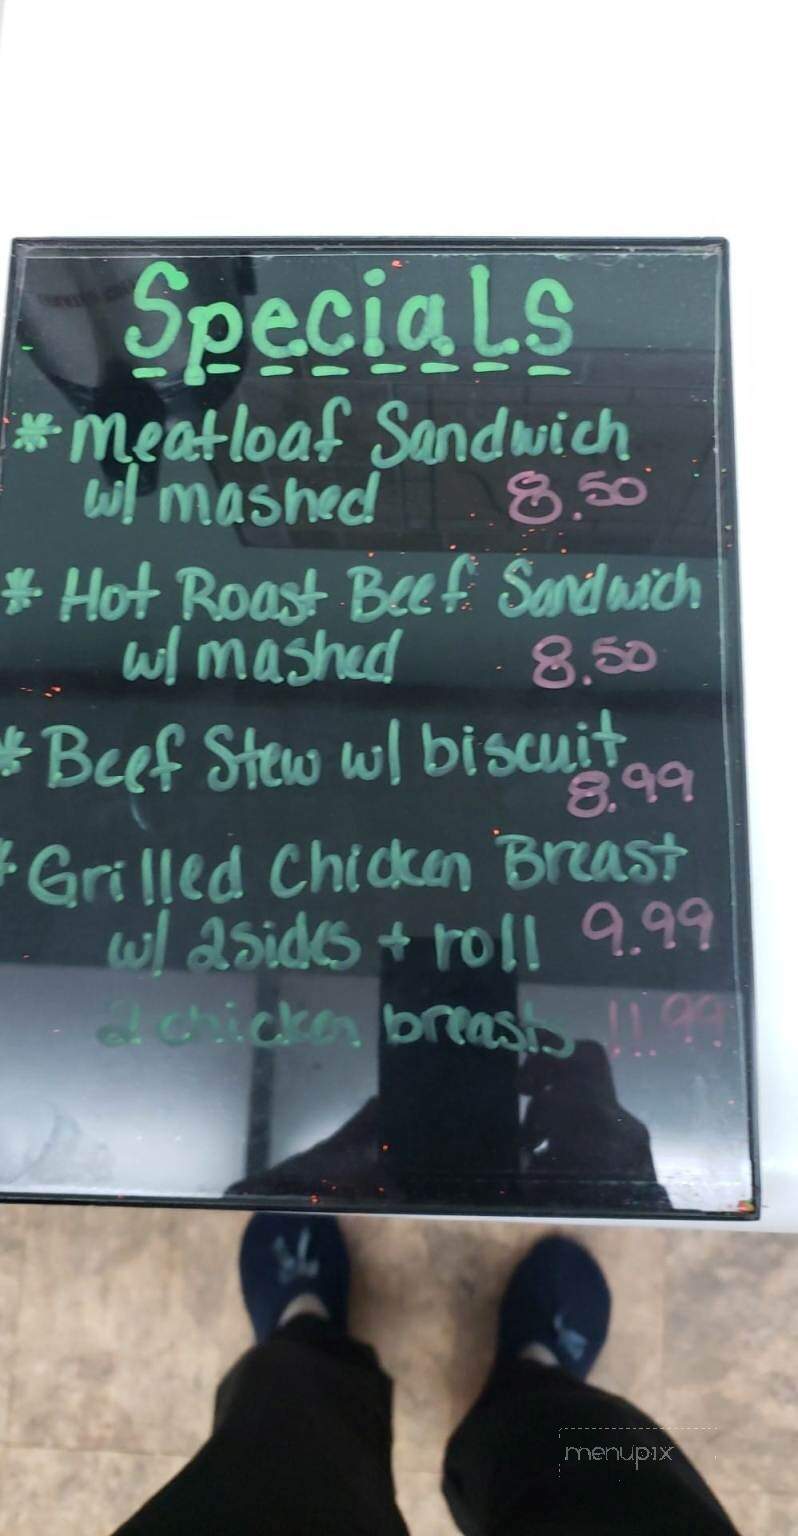 Specials
* Meatloaf Sandwich
w/ mashed 8.50
* Hot Roast Beef Sandwich
w/ mashed 8.50
* Beef Stew w/ biscuit
8.99
* Grilled Chicken Breast
w/ 2 sides + roll 9.99
2 chicken breasts 11.99
menupix